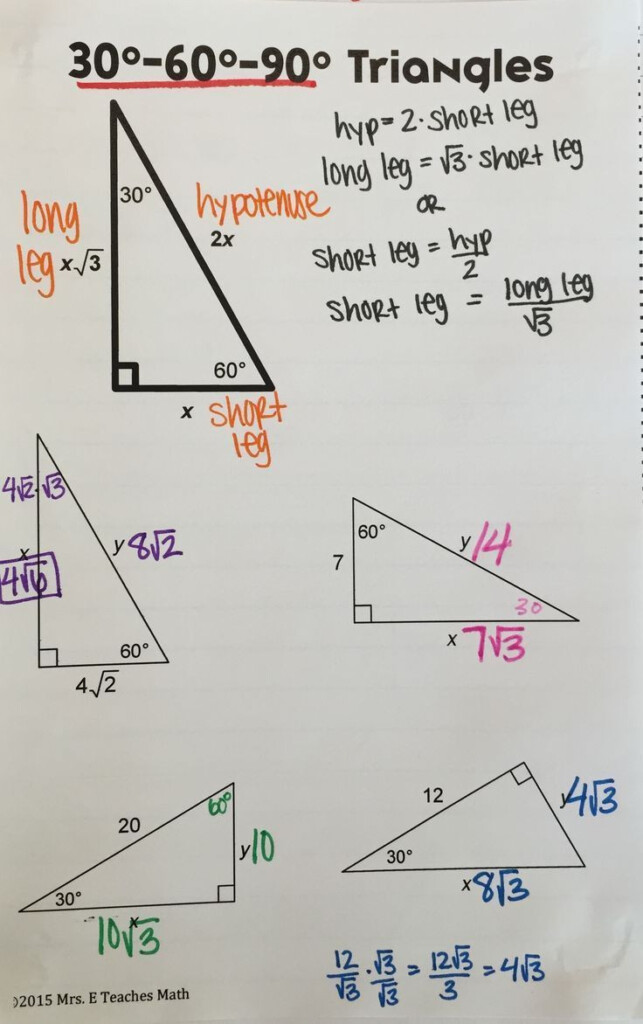 30°-60°-90° Triangles
hyp = 2·short leg
long leg = √3·short leg
OR
short leg = hyp/2
short leg = long leg/√3
30°
long
leg
x√3
hypotenuse
2x
60°
x
short
leg
4√2·√3
x
4√6
y 8√2
60°
4√2
60°
7
y 14
30
x 7√3
20
60°
y 10
30°
x
10√3
12
y 4√3
30°
x 8√3
12/√3 · √3/√3 = 12√3/3 = 4√3
©2015 Mrs. E Teaches Math